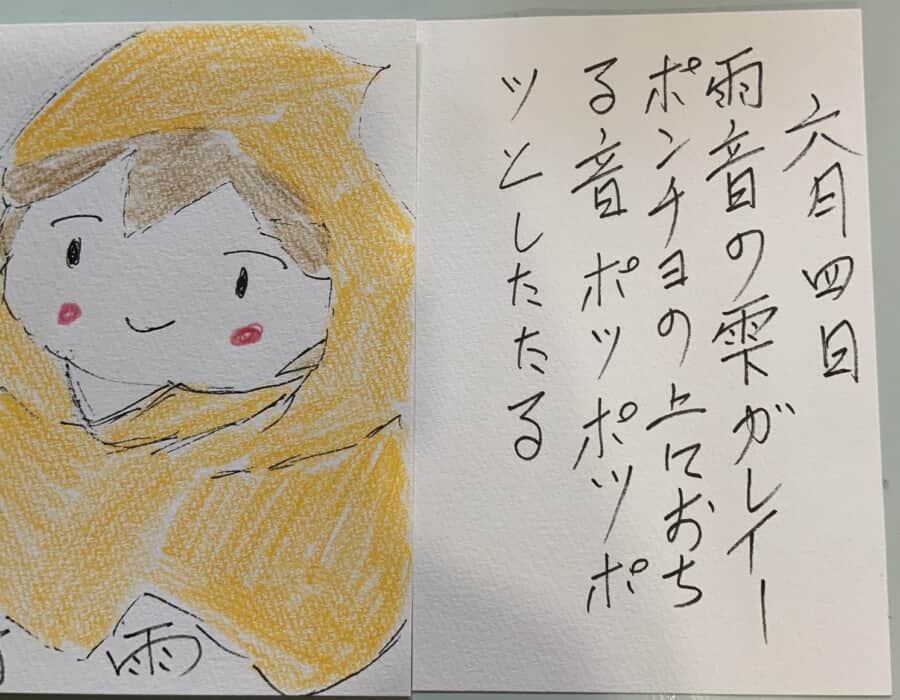 六月四日
雨音の雫がレイー
ポンチョの上におち
る音 ポッポッポ
ツとしたたる
雨